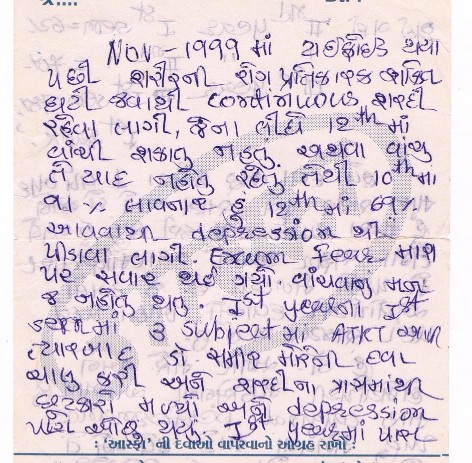 NOV-1999 માં ટાઇફોઇડ થયા
પછી શરીરની રોગ પ્રતિકારક શક્તિ
ઘટી જવાથી continuous શરદી
રહેવા લાગી, જેના લીધે 12th માં
વાંચી શકાતુ નહતું. અથવા વાંચુ
તે યાદ નહોતુ રહેતું. તેથી 10th મા
લાવનાર હું 12th માં 69%
આવવાથી depression થી
પીડાવા લાગી. Exam fear મારા
પર સવાર થઈ ગયો. વાંચવાનું મન
જ નહોતુ થતુ. Ist yearના Ist
માં 3 subject માં ATKT આવી
ત્યારબાદ ડો. સમીર દવા
ચાલુ કરી અને શરદીના ત્રાસમાંથી
છુટકારો મળ્યો અને depression
પણ ઓછુ થયું. Ist yearમાં પાસ
: 'આસ્ફા' ની દવાઓ વાપરવાનો આગ્રહ રાખો :